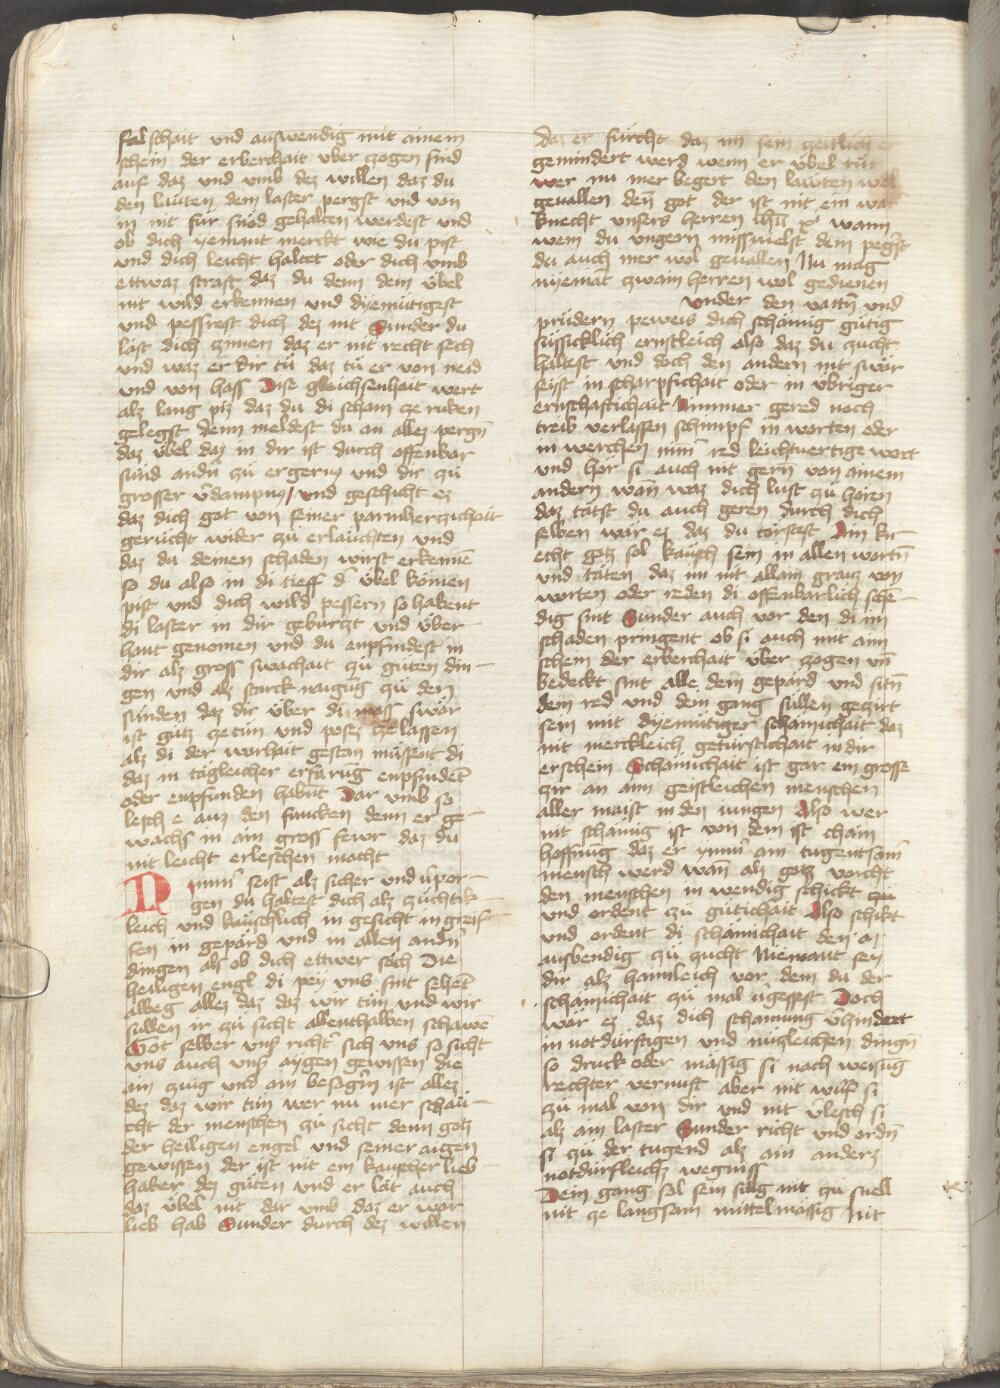 falschait und auswendig mit ainem
schein der erberchait vber zogen sind
auf daz und vmb dez willen daz du
den lauten dem laster pergst und von
in nit fur snod gehalten werdest und
ob dich yemant merckt wie du pist
und dich leicht haltet oder dich vmb
ettwaz straft daz du denn dem vbel
nit wild erkennen und dyemutigest
und pessrest dich dez nit Sunder du
last dich zimen daz er nit recht sech
und waz er dir tu daz tu er von neid
und von hass Dise gleichsenhait wert
alz lang piz daz du di scham ze ruken
gelegst denn meldest du an allez pergn̄
daz vbel daz in dir ist durch offenbar
sund andn̄ zu ergerng und dir zu
grosser v̄dampng / und geschicht ez
daz dich got von seiner parmherzichait
gerucht wider zu erlauchten und
daz du deinen schaden wirst erkenne̅
so du also in di tieff d̄ vbel komen
pist und dich wild pessern so habent
di laster in dir gewurtzt und vber-
hant genomen und du enpfindest in
dir alz gross swachait zu guten din-
gen und alz starck naigu̅g zu den
sunden daz dir vber di mass swar
ist gutz ze tun und posez ze lassen
alz di der warhait gestan mussent di
daz in tagleicher erfaru̅g enpfinde̅t
oder enpfunden habn̄t Dar vmb so
lesch e auz den funcken denn er ge-
wachs in ain gross fewr daz du
nit leicht erleschen macht
Nimm̄ seist alz sicher und v̄por-
gen du haltest dich alz zuchtik-
leich und kauschlich in gesicht in greif-
fen in gepard und in allen andn̄
dingen alz ob dich ettwer sech Die
heiligen engl di pey uns sint sehe̅t
albeg allez daz daz wir tun und wir
sullen ir zu sicht allenthalben schawe̅
Got selber uns richt̄ sich uns so sicht
uns auch uns aygen gewissen die
ain zwig und ain besagrin ist allez
dez daz wir tun wer nu mer schaū-
cht der menschen zu sicht denn gotz
der heiligen engel und seiner aigen
gewissen der ist nit ein kauscher lieb-
haber dez guten und er lat auch
daz vbel nit dar vmb daz er war
lieb hab Sunder durch dez willen
daz er furcht daz im sein zeitlich er
gemindert werd wenn er vbel tut
wer nu mer begert den lawten wol
geuallen den̄ got der ist nit ein war
knecht unsers herren ihū xp̄ wann
wem du ungern missuielst dem pegerst
du auch mer wol geuallen Nu mag
nyema̅t zwain herren wol gedienen
Under den vattn̄ und
prudern peweis dich schamig gutig
sussicklich ernstleich also daz du zucht
haltest und doch den andern nit swar
seyst in scharpfichait oder in vbriger
ernschaftichait Nimmer gered noch
treib verlassen schimpf in worten oder
in werchen nim̄ red leichtuertige wort
und hor si auch nit gern von ainem
andern wan̄ waz dich lust zu horen
daz tatst du auch geren durch dich
selben war ez daz du torstest Ain kn-
echt gotz sol kausch sein in allen wortn̄
und taten daz im nit allain grauz von
worten oder reden di offenbarlich sche-
dig sint Sunder auch vor den di im
schaden pringent ob si auch mit aim
schein der erberchait vber zogen un̄
bedeckt sint Alle dein gepard und sitn̄
dein red und dein gang sullen geziirt
sein mit dyemutiger schamichait daz
nit merckleich geturstichait in dir
erschein Schamichait ist gar ein grosse
zir an aim geistleichen menschen
aller maist in den iungen Also wer
nit schamig ist von dem ist chain
hoffnu̅g daz er ymm̄ ain tugentsam̄
mensch werd wan̄ alz gotz vorcht
den menschen in wendig schickt zu
und ordent zu gutichait Also schikt
und ordent di schamichait den a
ausbendig zu zucht Niemant sey
dir alz haimleich vor dem du der
schamichait zu mal v̄gessest Doch
war ez daz dich schamung v̄hindert
in notdurftigen und nuzleichen dingn̄
so druck oder massig si nach weisu̅g
rechter vernuft aber nit wurf si
zu mal von dir und nit v̄lesch si
alz ain laster Sunder richt und ordn̄
si zu der tugend alz ain anderz
notdurfleichz wegniss
Dein gang sol sein sitig nit zu snell
nit ze langsam mittelmassig Nit